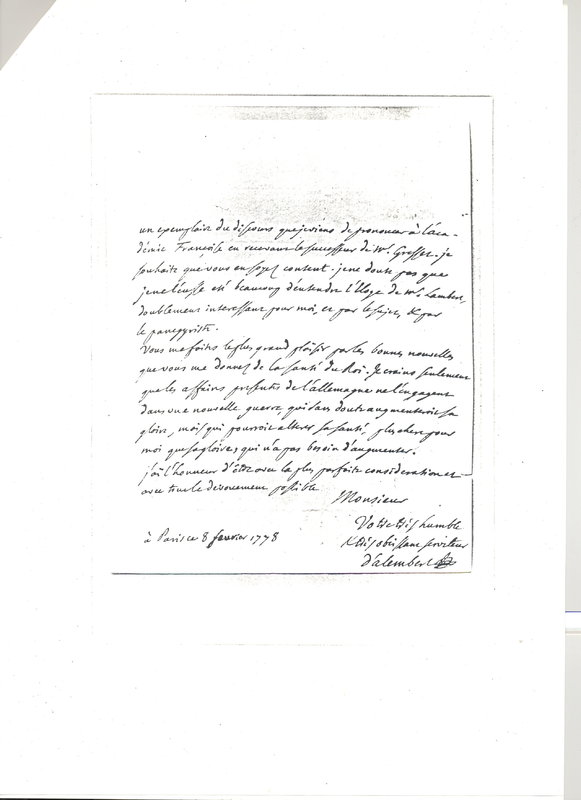 un exemplaire du discours que je viens de prononcer à l'aca-
démie Françoise en recevant le successeur de Mr. Gresset. je
souhaite que vous en soyez content. je ne doute pas que
je n'eusse été beaucoup d'entendre l'Eloge de Mr. Lambert,
doublement interessant pour moi, et par le sujet, & par
le panegyriste.
Vous me faites le plus grand plaisir par les bonnes nouvelles
que vous me donnez de la santé du Roi. Je crains seulement
que les affaires presentes de l'allemagne ne l'engagent
dans une nouvelle guerre, qui sans doute augmenteroit sa
gloire, mais qui pourroit alterer sa santé, plus chere pour
moi que sa gloire, qui n'a pas besoin d'augmenter.
j'ai l'honneur d'être avec la plus parfaite consideration et
avec tout le devouement possible
Monsieur
Votre très humble
& très obeissant serviteur
d'alembert
à Paris ce 8 fevrier 1778